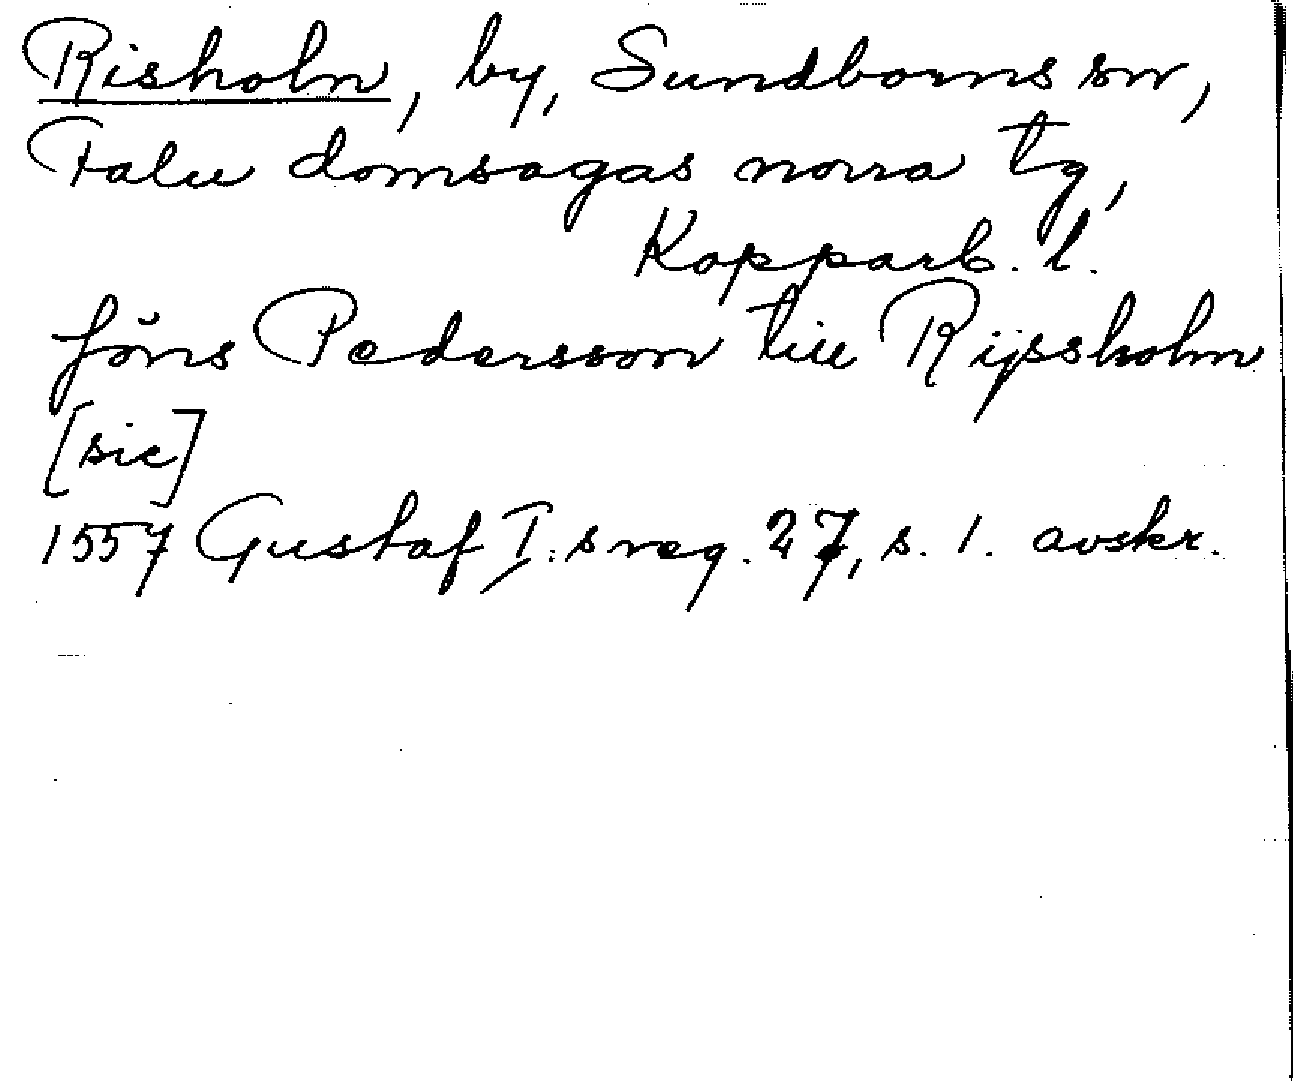 Risholn, by, Sundborns sn,
Falu domsagas norra tg,
Kopparb. l.
Jöns Pedersson till Rijssholm
[sic]
1557 Gustaf I:s reg. 27, s. 1. avskr.